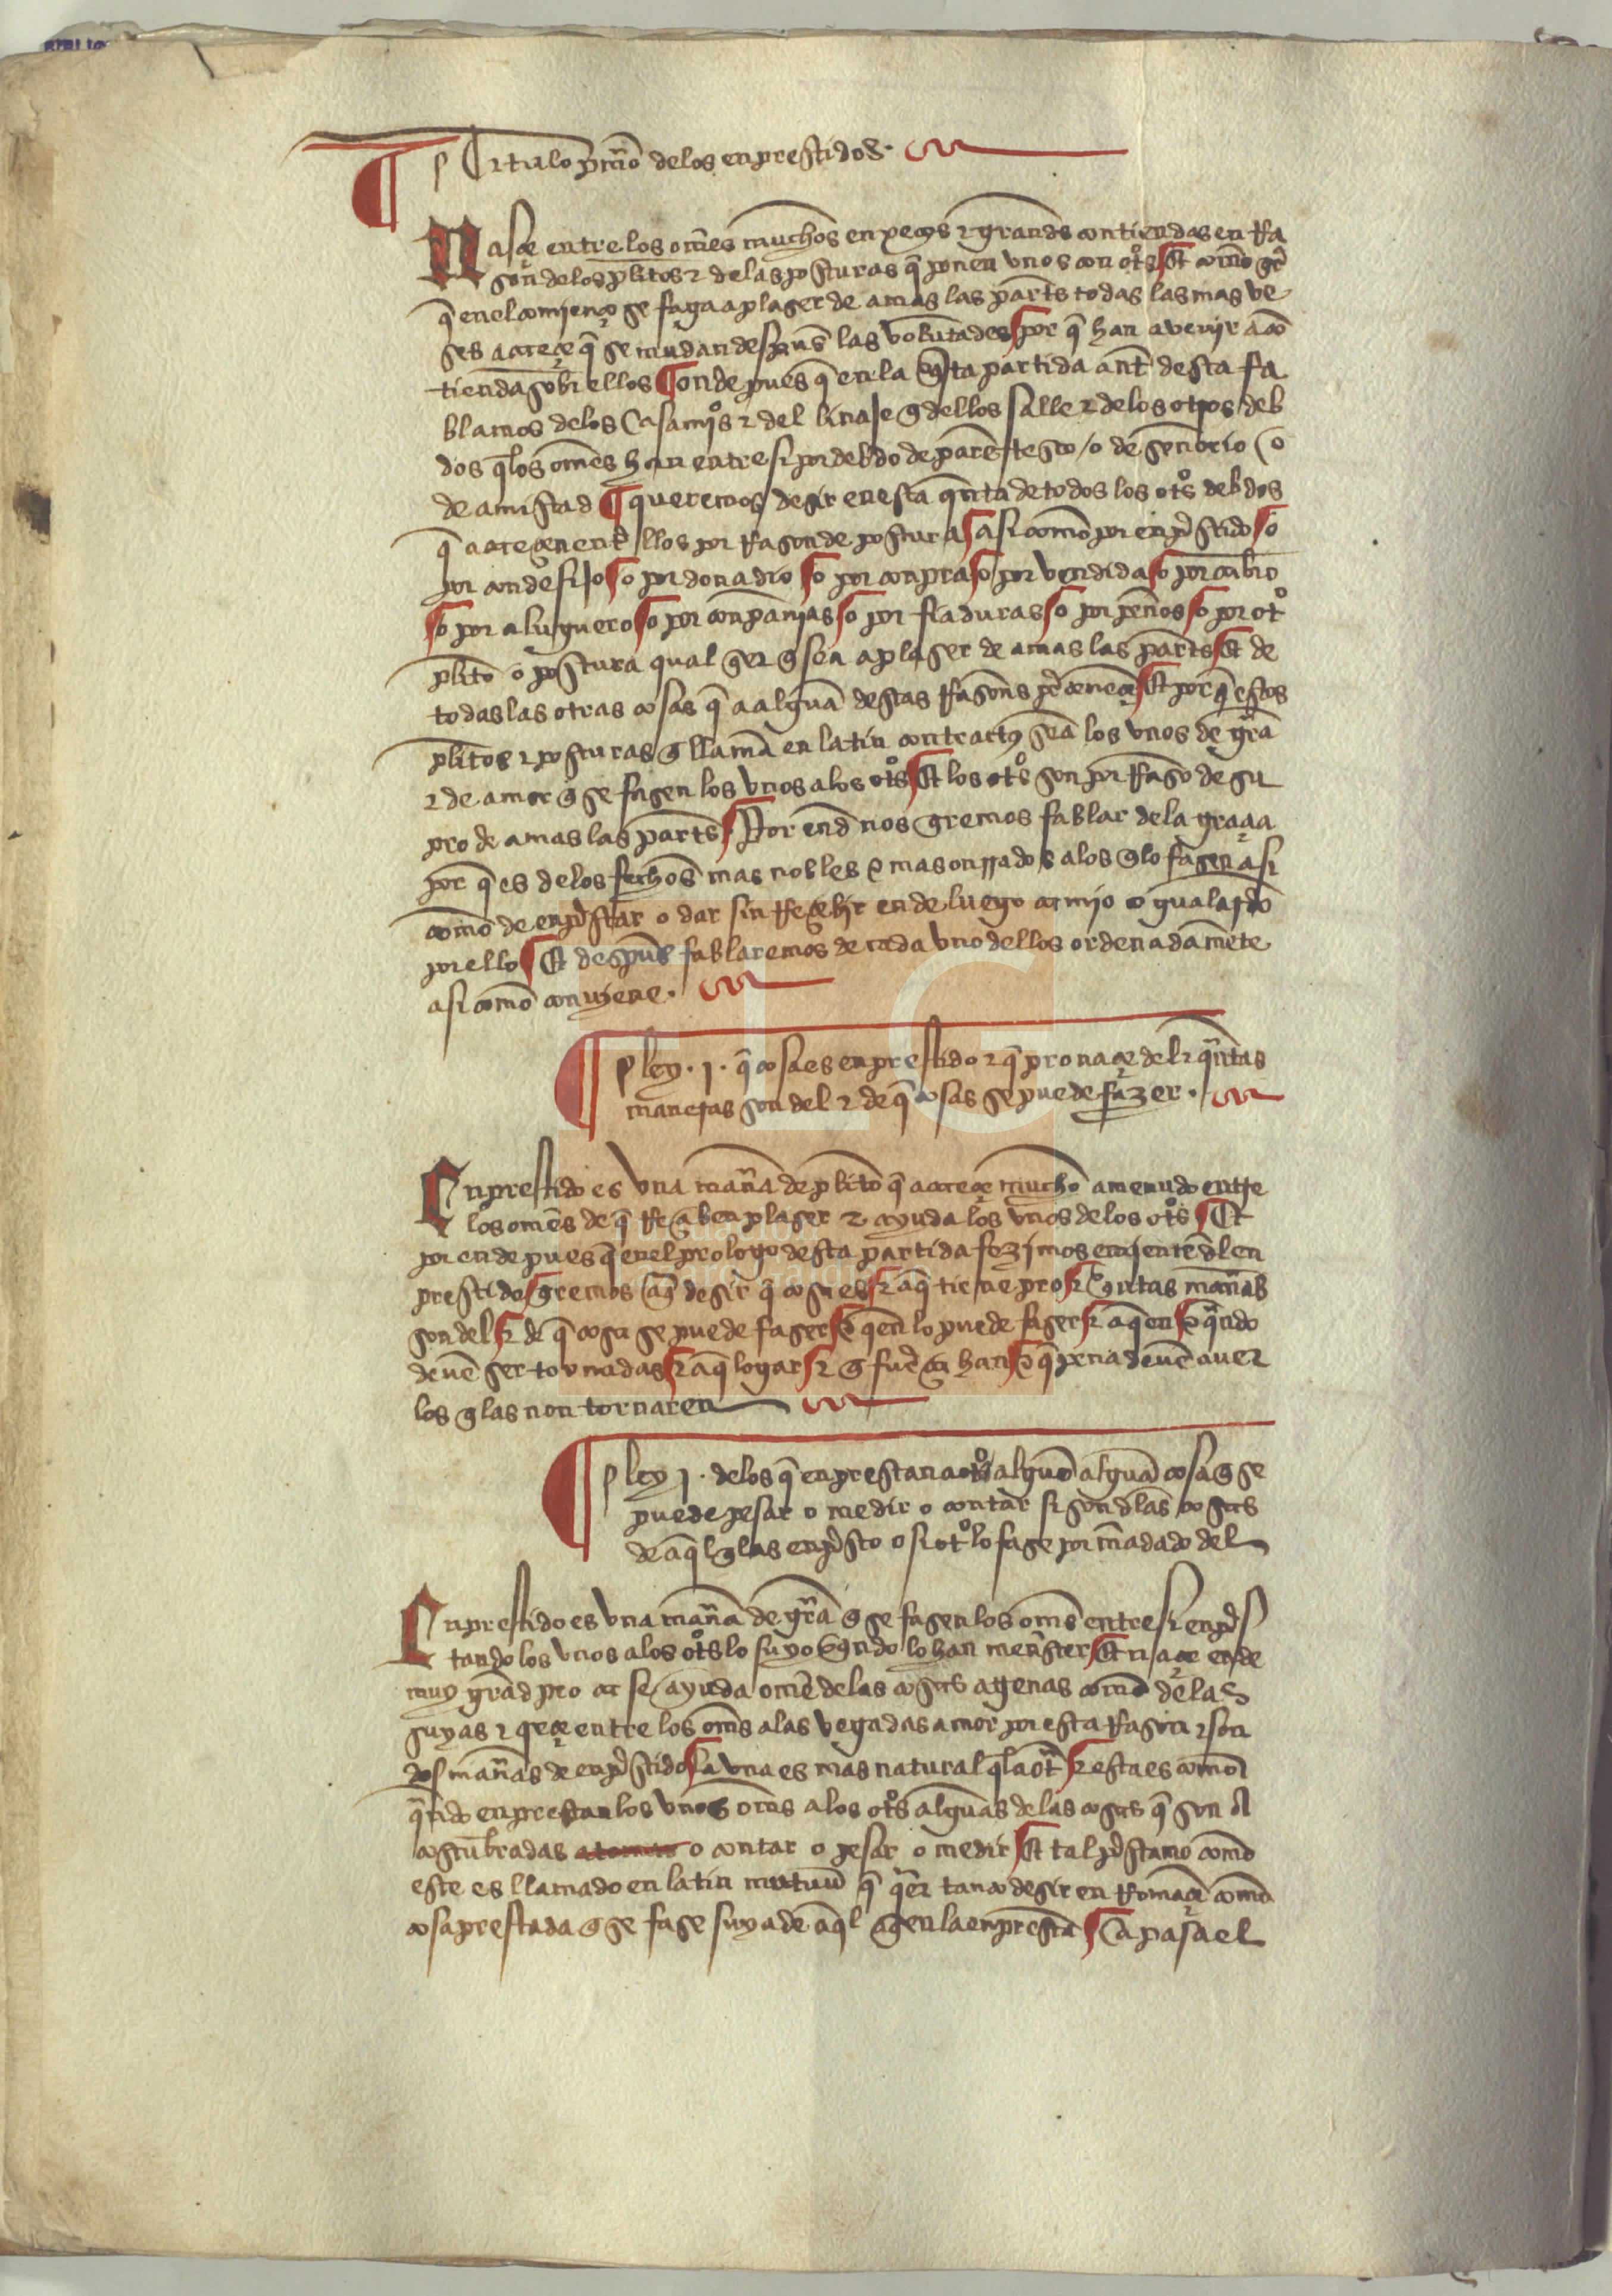 ¶ Titulo pͥmo delos enprestidos.
Nasçe entre los om̃es muchos enxecos ⁊ grandes contiendas en Ra
son delos plitos ⁊ delas posturas q̃ ponen vnos con ot̊s Et com̃o q̃r
q̃ enel comienço se faga a plaser de amas las part̃s todas las mas ve
ses acaeçe q̃ se mudan despus̃ las volũtades por q̃ han avenir a cõ
tienda sobr̃ ellos Onde pues q̃ en la q̃rta partida ant̃ desta fa
blamos delos Casamj̊s ⁊ del linaje q̃ dellos salle ⁊ delos otros deb
dos q̃ los om̃es han entresi por debdo de parẽtesco / o de señorio / o
de amistad ¶ queremos desir en esta qͥnta de todos los ot̊s debdos
q̃ acaeçen entr̃ llos por Rason de postura asi com̃o por enpr̃stido o
por condesijo o por donadio o por conpra o por vendida o por canbio
o por aluguero o por conpanjas o por fiaduras o por peños o por ot̊
plito o postura qual q̃er q̃ sea a plaser de amas las part̃s Et de
todas las otras cosas q̃ a algua͂ destas Rasons̃ pr̃teneçe Et por q̃ estos
plitos ⁊ posturas q̃ llamã en latin contractus seã los vnos de gr̃a
⁊ de amor q̃ se fasen los vnos alos ot̊s Et los ot̊s son por Rasõ de su
pro de amas las part̃s Por end̃ nos q̃remos fablar dela graçia
por q̃ es delos fechos mas nobles ⁊ mas onrrados alos q̃ lo fasen asi
com̃o de enpr̃star o dar sin Reçebir ende luego camjo o gualardõ
por ello Et despus̃ fablaremos de cada vno dellos ordenadamẽte
asi com̃o conujene.
¶ ley . j . q̃ cosa es enprestido ⁊ q̃ pro naçe del ⁊ qͣntas
maneras son del ⁊ de q̃ cosas se puede fazer .
Enprestido es vna mañA de plito q̃ acaeçe mucho amenudo entre
los om̃es de q̃ Reçiben plaser ⁊ ayuda los vnos delos ot̊s Et
por ende pues q̃ enel prologo desta partida fezimos emjente del en
prestido q̃remos aq̃ desir q̃ cosa es ⁊ a q̃ tiene pro ⁊ qͣntas mañas
son del ⁊ de q̃ cosa se puede faser ⁊ qͥen lo puede faser ⁊ a qͥen ⁊ qͣndo
deuẽ ser tornadas ⁊ a q̃ logar ⁊ q̃ fuerça han ⁊ q̃ pena deuẽ auer
los q̃ las non tornaren
¶ ley j . delos q̃ enprestan a ot̊ algũo algũa cosa q̃ se
puede pesar o medir o contar si son dlas cosas
de aq̃l q̃ las enpr̃sto o si ot̊ lo fase por mãdado del
Enprestido es vna mañA de gr̃a q̃ se fasen los om̃s entresi enpr̃s
tando los vnos alos ot̊s lo suyo qͣndo lo han meñster Et naçe ende
muy grãd pro ca se ayuda om̃e delas cosas agenas com̃o delas
suyas ⁊ creçe entre los om̃s alas vegadas amor por esta Rason ⁊ son
dos mañas de enpr̃stido la vna es mas natural q̃ la ot̃ ⁊ esta es com̃o
qͣndo enprestan los vnos om̃s alos ot̊s algũas delas cosas q̃ son a
costũbradas a tomar o contar o pesar o medir Et tal pr̃stamo com̃o
este es llamado en latin mutuũ q̃ qͥer tanto desir en Romãçe com̃o
cosa prestada q̃ se fase suya de aq̃l a qͥen la enprestã Ca pasa el